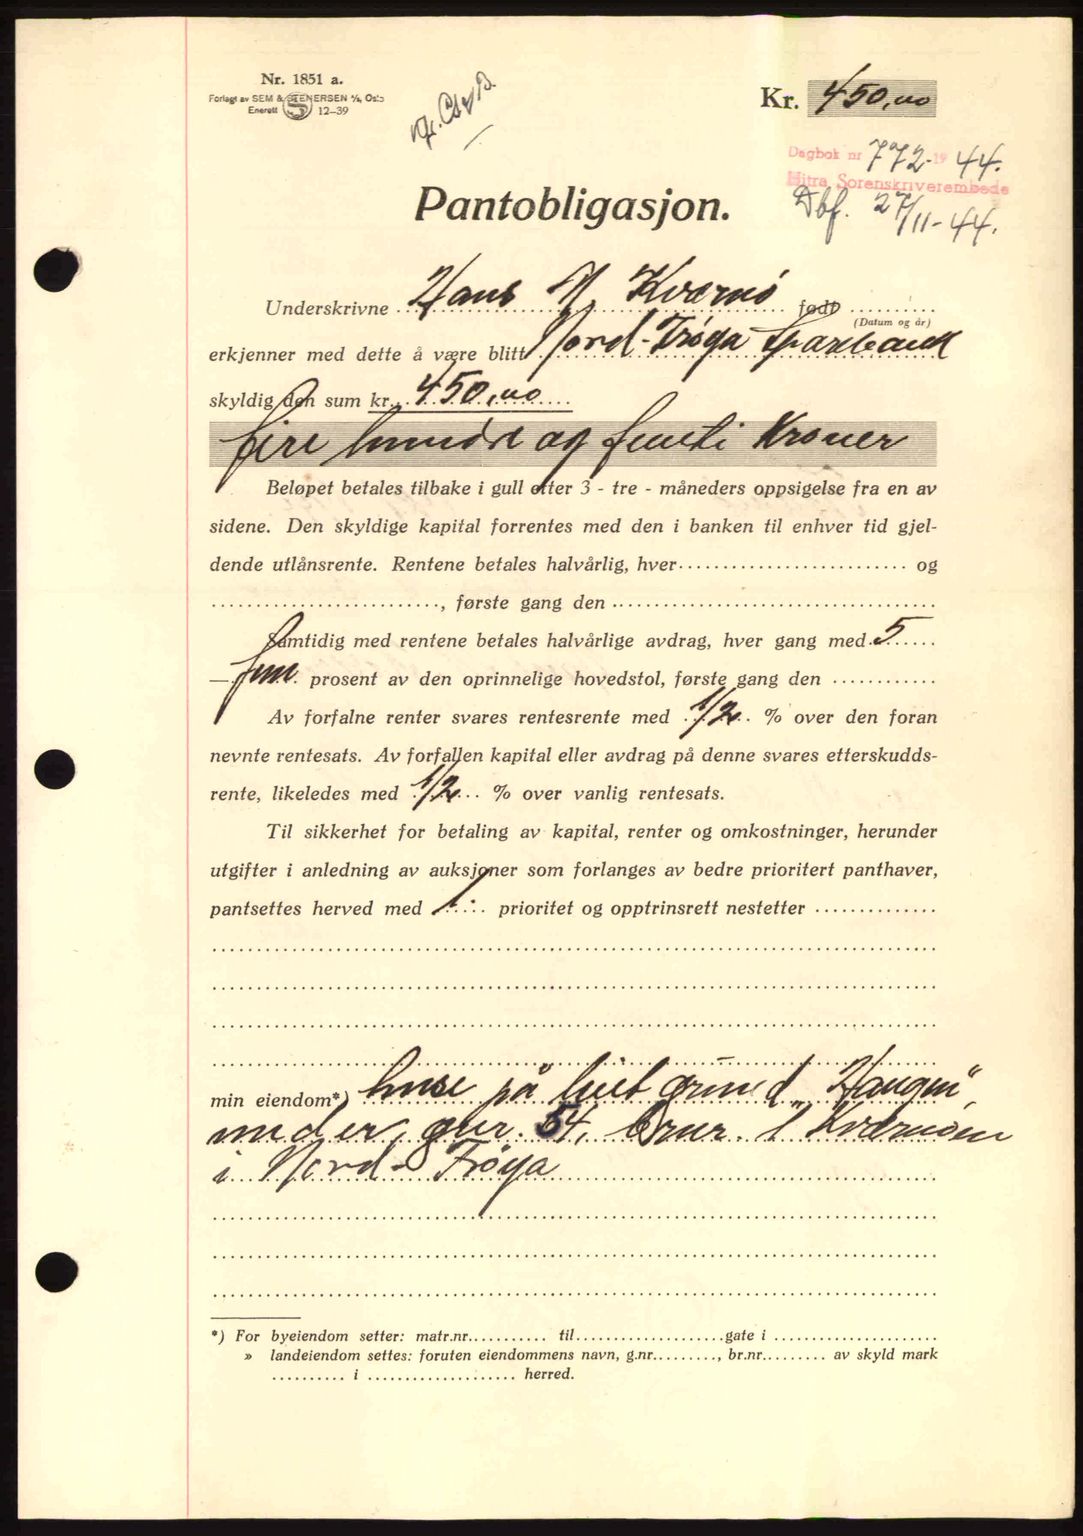 Nr. 1851 a.
Forlagt av SEM & STENERSEN A/S, Oslo
Enerett S 12-39
Kr. 450,00
Dagbok nr 772 19 44.
Hitra Sorenskriverembede
Dbf. 27/11-44.
Pantobligasjon.
Underskrivne Hans N. Kværnø født
(Datum og år)
erkjenner med dette å være blitt Nord-Frøya Sparebank
skyldig den sum kr. 450,00
fire hundre og femti Kroner
Beløpet betales tilbake i gull etter 3 - tre - måneders oppsigelse fra en av
sidene. Den skyldige kapital forrentes med den i banken til enhver tid gjel-
dende utlånsrente. Rentene betales halvårlig, hver og
, første gang den
Samtidig med rentene betales halvårlige avdrag, hver gang med 5
— fem prosent av den oprinnelige hovedstol, første gang den
Av forfalne renter svares rentesrente med 1/2 % over den foran
nevnte rentesats. Av forfallen kapital eller avdrag på denne svares etterskudds-
rente, likeledes med 1/2 % over vanlig rentesats.
Til sikkerhet for betaling av kapital, renter og omkostninger, herunder
utgifter i anledning av auksjoner som forlanges av bedre prioritert panthaver,
pantsettes herved med 1. prioritet og opptrinsrett nestetter
min eiendom*) huse på leiet grund „Haugen“,
under gnr. 54, brnr. 1 Kværnøen
i Nord-Frøya
*) For byeiendom setter: matr.nr. til gate i
» landeiendom settes: foruten eiendommens navn, g.nr. , br.nr. av skyld mark
i herred.